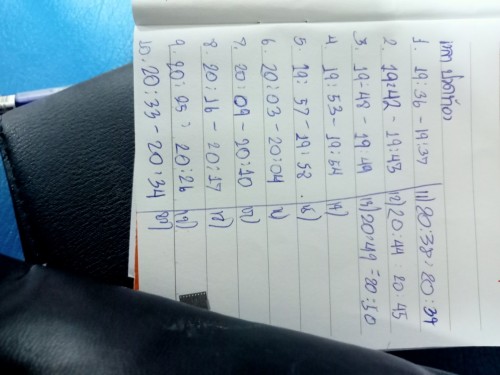 1. 19:36 - 19:37
11) 20:38 : 20:39
2. 19:42 - 19:43
12) 20:44 : 20:45
3. 19:48 - 19:49
13) 20:49 = 20:50
4. 19:53 - 19:54
14)
5. 19:57 - 19:58
15)
6. 20:03 - 20:04
16)
7. 20:09 - 20:10
17)
8. 20:16 - 20:17
18)
9. 20:25 : 20:26
19)
10. 20:33 - 20:34
20)